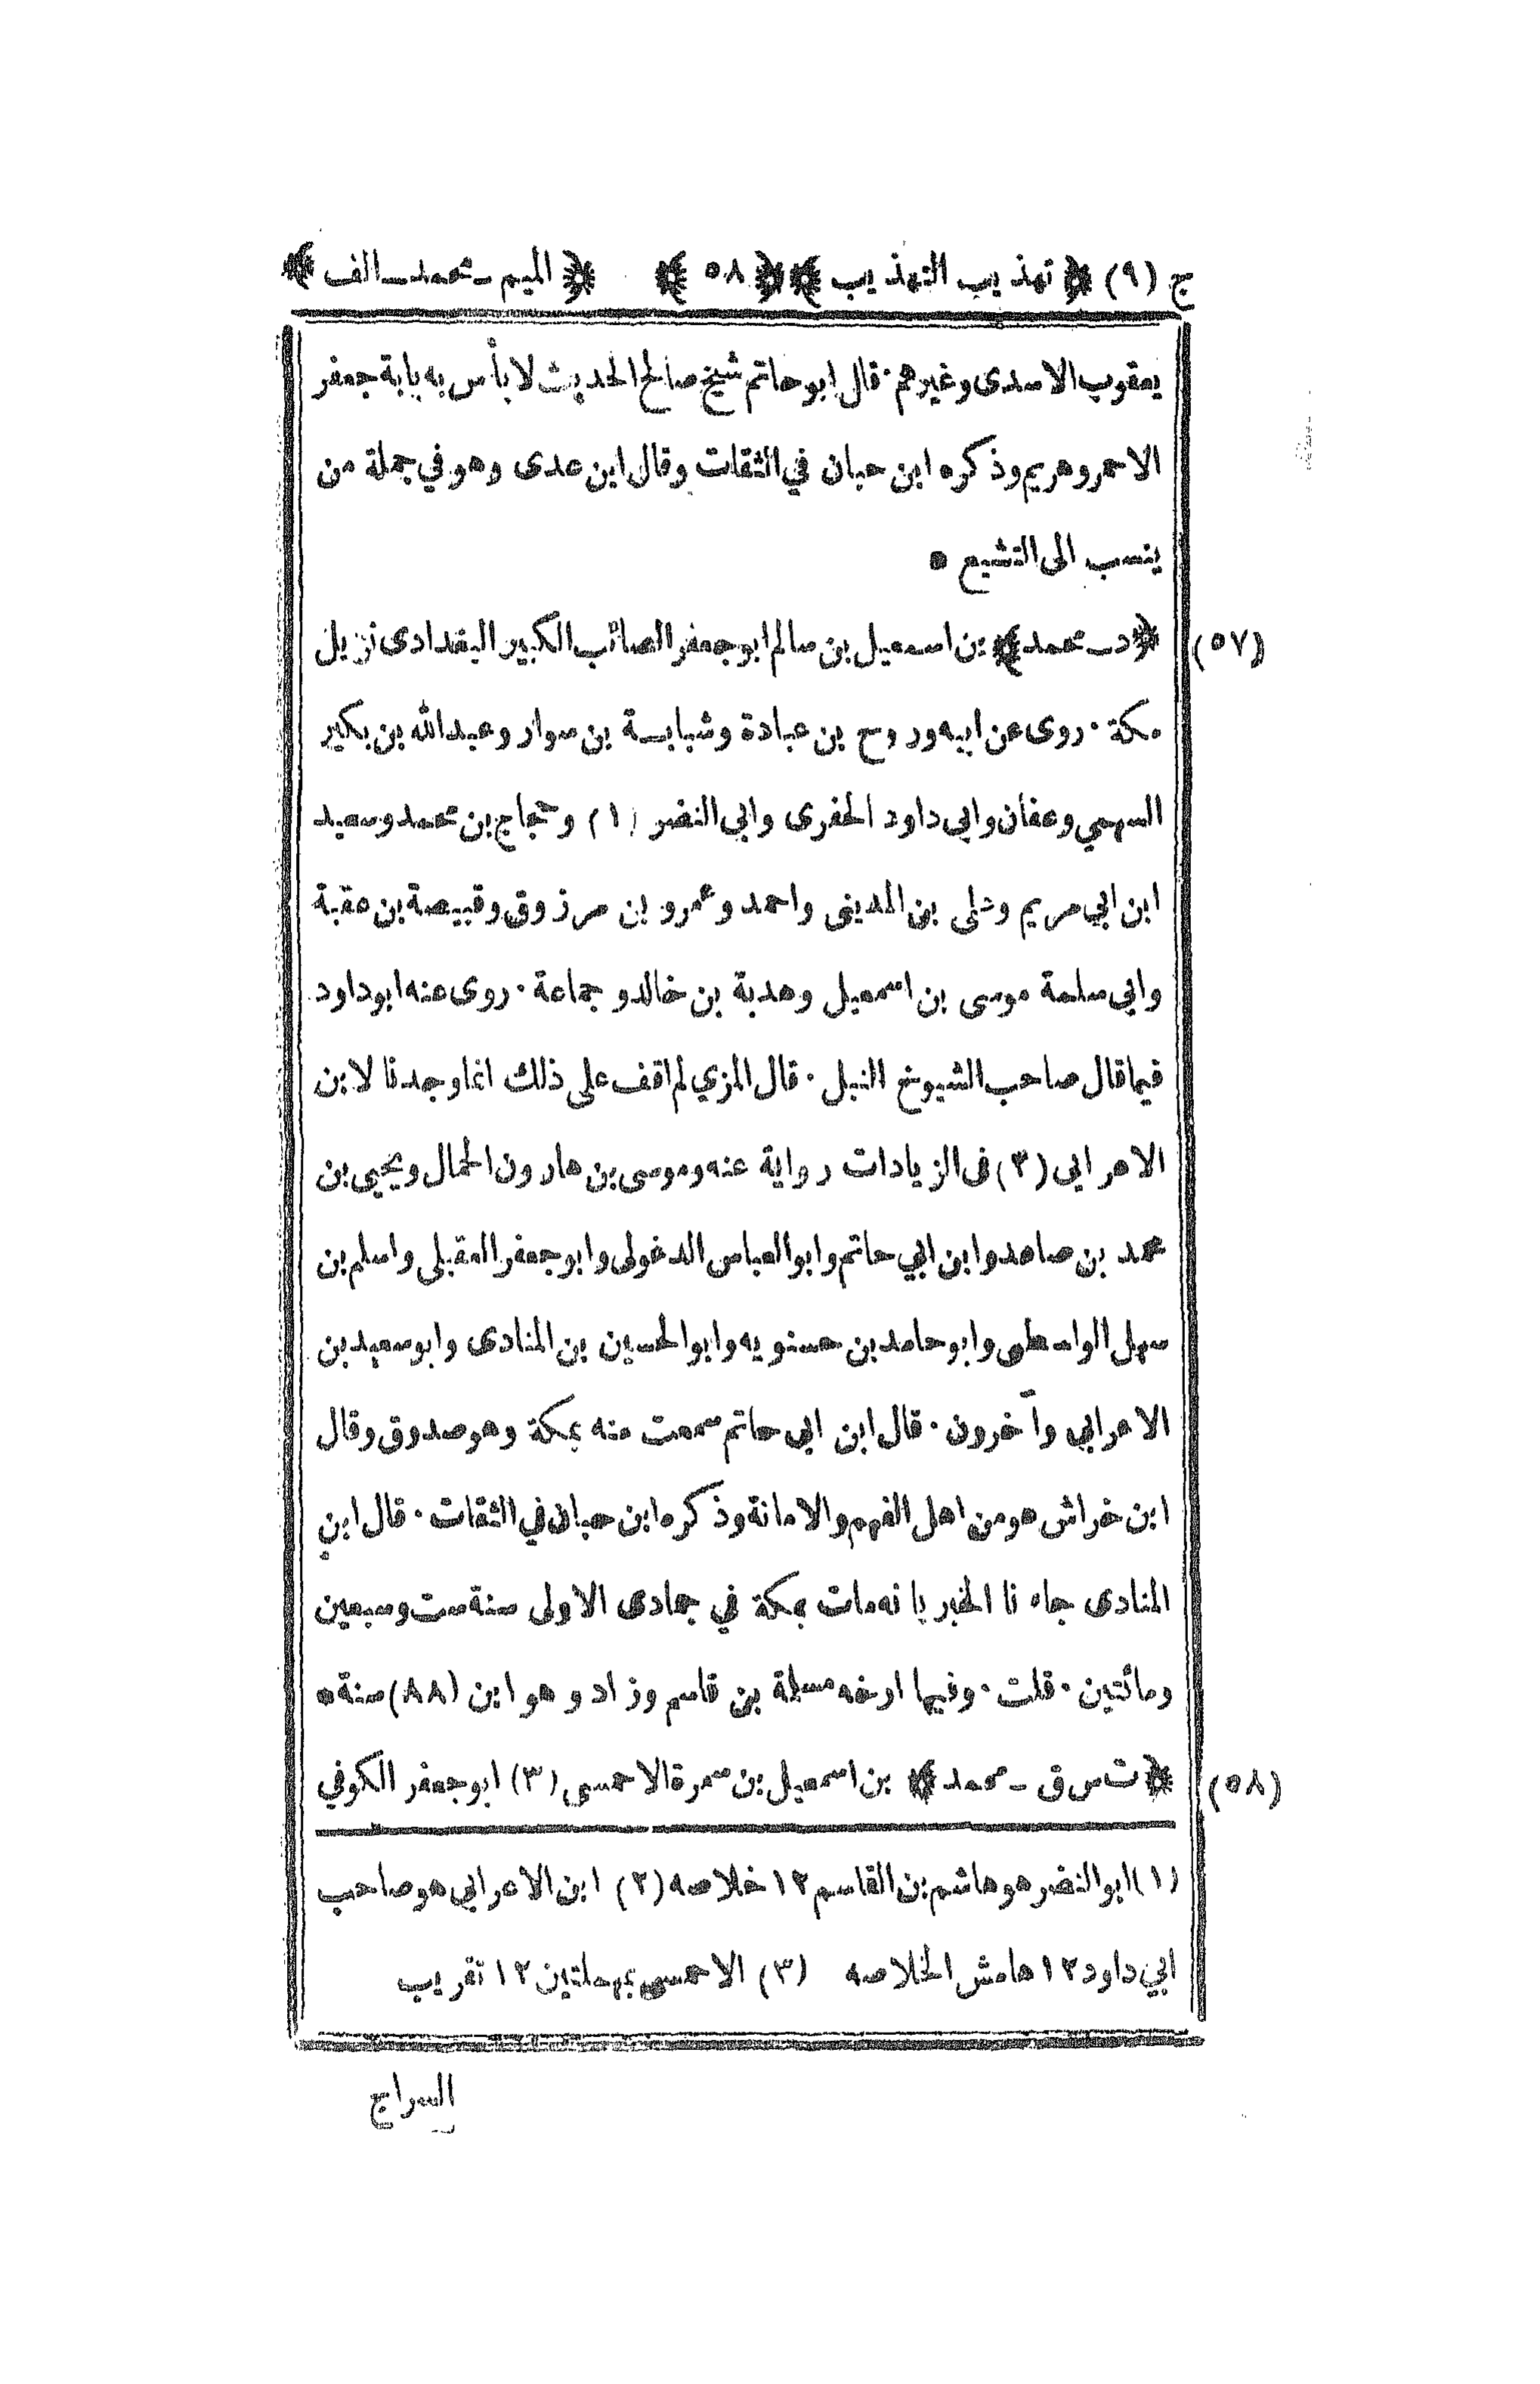 ج (٩) ﴿ تهذيب التهذيب ﴾ ﴿ ٥٨ ﴾ ﴿ الميم ـ محمد ـ الف ﴾
يعقوب الاسدى وغيرهم ٠ قال ابو حاتم شيخ صالح الحديث لا بأس به بابة جعفر
الاحمر وهريم وذكره ابن حبان في الثقات وقال ابن عدى وهو في جملة من
ينسب الى التشيع ●
(٥٧) ﴿ د ـ محمد ﴾ بن اسمعيل بن سالم ابو جعفر الصائب الكبير البغدادى نزيل
مكة ٠ روى عن ابيه وروح بن عبادة وشبابسة بن سوار وعبد الله بن بكير
السهمي وعفان وابي داود الحفرى وابي النضر (١) وحجاج بن محمد وسعيد
ابن ابي مريم وعلى بن المدينى واحمد وعمرو بن مرزوق وقبيصة بن عقبة
وابي سلمة موسى بن اسمعيل وهدبة بن خالد و جماعة ٠ روى عنه ابو داود
فيما قال صاحب الشيوخ النبل ٠ قال المزي لم اقف على ذلك انما وجدنا لابن
الاعرابي (٢) فى الزيادات رواية عنه وموسى بن هارون الحمال ويحيى بن
محمد بن صاعد وابن ابي حاتم وابو العباس الدغولى وابو جعفر العقيلى واسلم بن
سهل الواسطى وابو حامد بن حسنويه وابو الحسين بن المنادى وابو سعيد بن
الاعرابي وآخرون ٠ قال ابن ابي حاتم سمعت منه بمكة وهو صدوق وقال
ابن خراش هو من اهل الفهم والامانة وذكره ابن حبان في الثقات ٠ قال ابن
المنادى جاءنا الخبر بانه مات بمكة في جمادى الاولى سنة ست وسبعين
ومائتين ٠ قلت ٠ وفيها ارخه مسلمة بن قاسم وزاد وهو ابن (٨٨) سنة ●
(٥٨) ﴿ ت س ق ـ محمد ﴾ بن اسمعيل بن سمرة الاحمسى (٣) ابو جعفر الكوفي
(١) ابو النضر هو هاشم بن القاسم ١٢ خلاصه (٢) ابن الاعرابي هو صاحب
ابي داود ١٢ هامش الخلاصه (٣) الاحمسى بمهملتين ١٢ تقريب
السراج